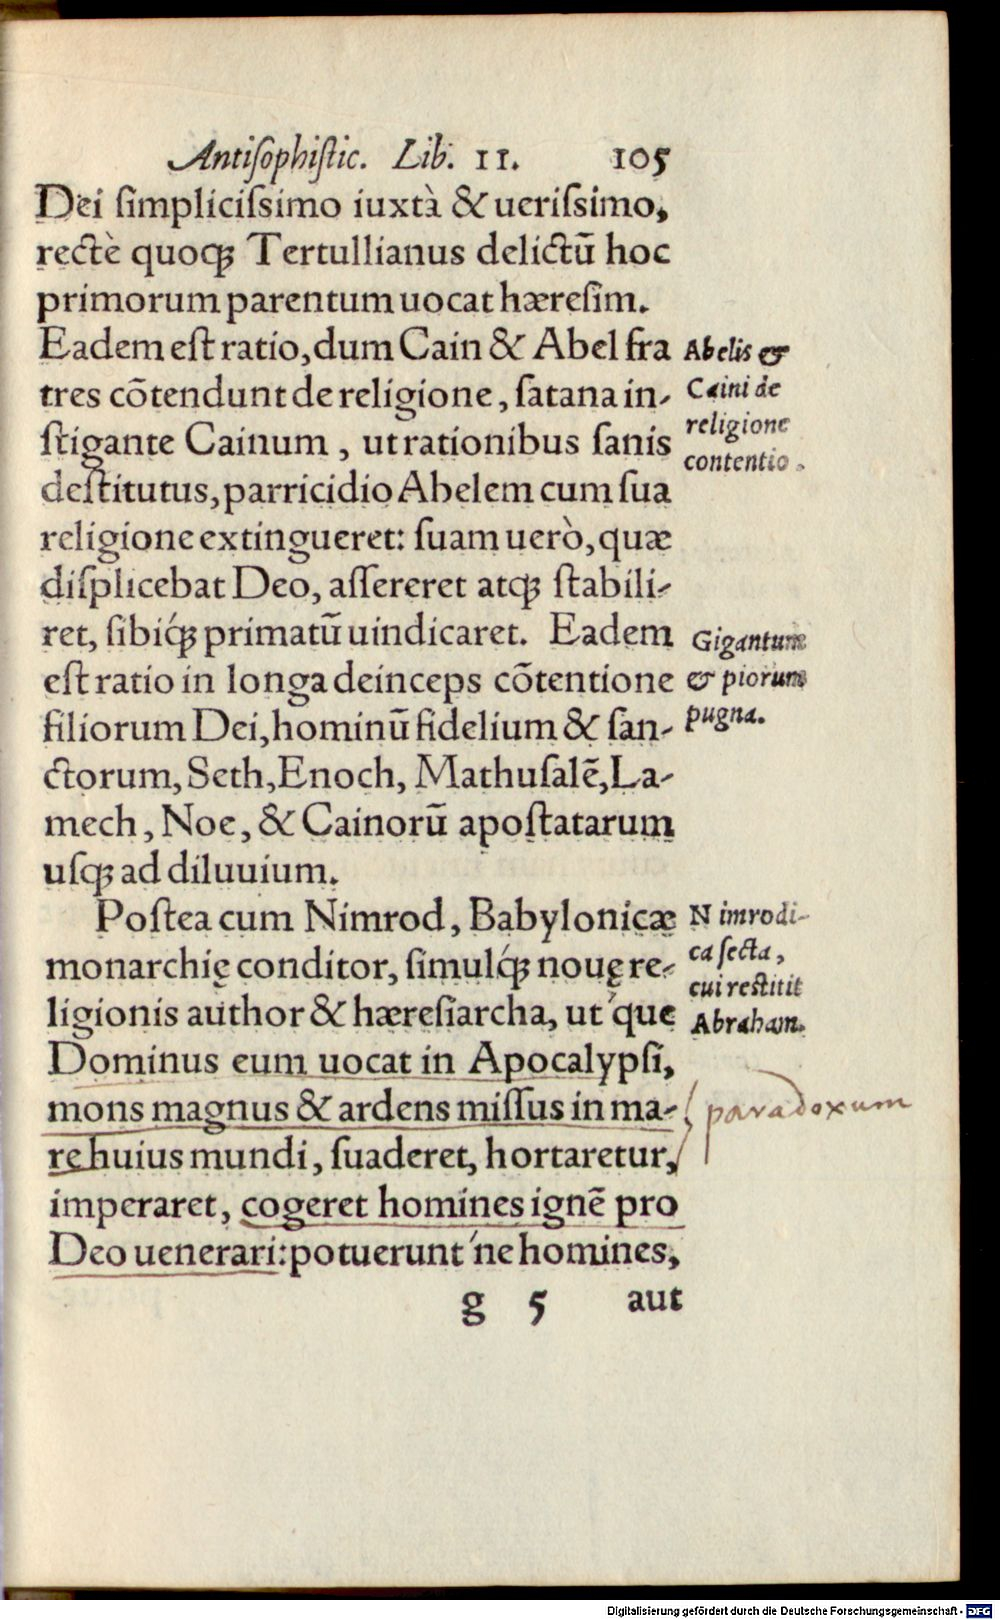 Antiſophiſtic. Lib. II. 105
Dei ſimpliciſsimo iuxtà & ueriſsimo,
rectè quoq́ꝫ Tertullianus delictū hoc
primorum parentum uocat hæreſim.
Eadem eſt ratio, dum Cain & Abel fra
tres cōtendunt de religione, ſatana in-
ſtigante Cainum, ut rationibus ſanis
deſtitutus, parricidio Abelem cum ſua
religione extingueret: ſuam uerò, quæ
diſplicebat Deo, aſſereret atqꝫ ſtabili-
ret, ſibiq́ꝫ primatū uindicaret. Eadem
eſt ratio in longa deinceps cōtentione
filiorum Dei, hominū fidelium & ſan-
ctorum, Seth, Enoch, Mathuſalē, La-
mech, Noe, & Cainorū apoſtatarum
uſqꝫ ad diluuium.
Poſtea cum Nimrod, Babylonicæ
monarchię conditor, ſimulq́ꝫ nouę re-
ligionis author & hæreſiarcha, ut'que
Dominus eum uocat in Apocalypſi,
mons magnus & ardens miſſus in ma-
re huius mundi, ſuaderet, hortaretur,
imperaret, cogeret homines ignē pro
Deo uenerari: potuerunt'ne homines,
g 5 aut
Abelis &
Caini de
religione
contentio.
Gigantum
& piorum
pugna.
Nimrodi-
ca ſecta,
cui reſtitit
Abraham.
paradoxum
Digitalisierung gefördert durch die Deutsche Forschungsgemeinschaft - DFG